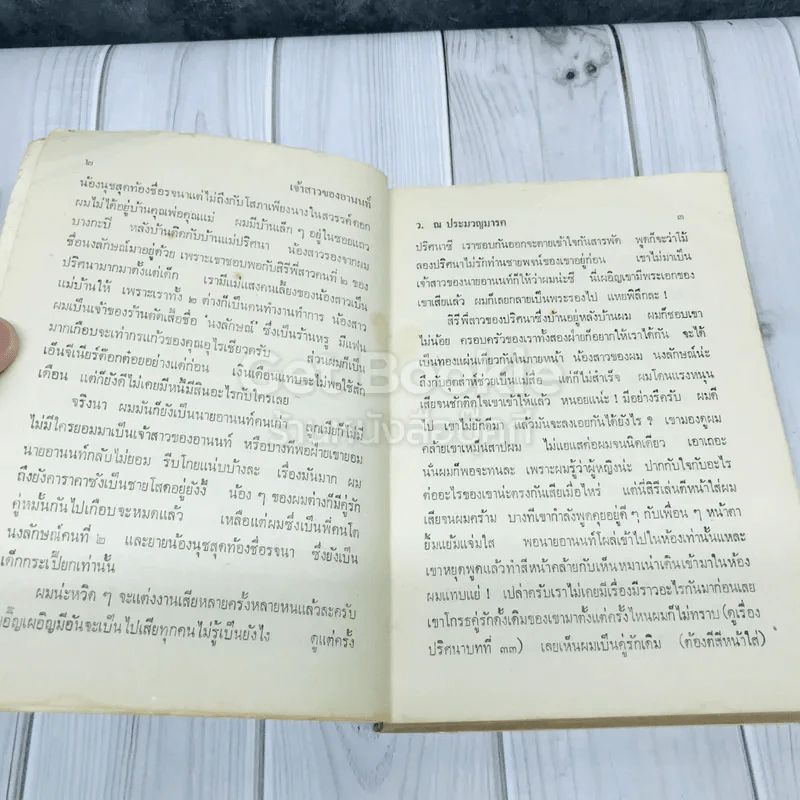 ๒
เจ้าสาวของอานนท์
น้องนุชสุดท้องชื่อรจนาแต่ไม่ถึงกับโสภาเพียงนางในสวรรค์ดอก
ผมไม่ได้อยู่บ้านคุณพ่อคุณแม่ ผมมีบ้านเล็ก ๆ อยู่ในซอยแถว
บางกะปิ หลังบ้านติดกับบ้านแม่ปริศนา น้องสาวรองจากผม
ชื่อนงลักษณ์มาอยู่ด้วย เพราะเขาชอบพอกับสิรีพี่สาวคนที่ ๒ ของ
ปริศนามากมาตั้งแต่เด็ก เรามีแม่แสงคนเลี้ยงของน้องสาวเป็น
แม่บ้านให้ เพราะเราทั้ง ๒ ต่างก็เป็นคนทำงานทำการ น้องสาว
ผมเป็นเจ้าของร้านตัดเสื้อชื่อ 'นงลักษณ์' ซึ่งเป็นร้านหรู มีแฟน
มากเกือบจะเท่ากรแก้วของคุณอุไรเชียวครับ ส่วนผมก็เป็น
เอ็นจีเนียร์ต๊อกต๋อยอย่างแต่ก่อน เงินเดือนแทบจะไม่พอใช้สัก
เดือน แต่ก็ยังดีไม่เคยมีหนี้มีสินอะไรกับใครเลย
จริงนา ผมมันก็ยังเป็นนายอานนท์คนเก่า ลูกเมียก็ไม่มี
ไม่มีใครยอมมาเป็นเจ้าสาวของอานนท์ หรือบางทีพอฝ่ายเขายอม
นายอานนท์กลับไม่ยอม รีบโกยแน่บบ้างละ เรื่องมันมาก ผม
ถึงยังคาราคาซังเป็นชายโสดอยู่ยังงี้ น้อง ๆ ของผมต่างก็มีคู่รัก
คู่หมั้นกันไปเกือบจะหมดแล้ว เหลือแต่ผมซึ่งเป็นพี่คนโต
นงลักษณ์คนที่ ๒ และยายน้องนุชสุดท้องชื่อรจนา ซึ่งยังเป็น
เด็กกระเปี๊ยกเท่านั้น
ผมน่ะหวิด ๆ จะแต่งงานเสียหลายครั้งหลายหนแล้วละครับ
เผอิญมีอันจะเป็นไปเสียทุกคนไม่รู้เป็นยังไง ดูแต่ครั้ง
ว. ณ ประมวญมารค
๓
ปริศนาซี เราชอบกันออกจะตายเข้าใจกันสารพัด พูดก็จะว่าไม้
ลองปริศนาไม่รักท่านชายพจน์ของเขาอยู่ก่อน เขาไม่มาเป็น
เจ้าสาวของนายอานนท์ก็ให้ว่าผมน่ะซี นี่เผอิญเขามีพระเอกของ
เขาเสียแล้ว ผมก็เลยกลายเป็นพระรองไป แหยพิลึกละ !
สิรีพี่สาวของปริศนาซึ่งบ้านอยู่หลังบ้านผม ผมก็ชอบเขา
ไม่น้อย ครอบครัวของเราทั้งสองฝ่ายก็อยากให้เราได้กัน จะได้
เป็นทองแผ่นเดียวกันในภายหน้า น้องสาวของผม นงลักษณ์น่ะ
ถึงกับอุตส่าห์ช่วยเป็นแม่สื่อ แต่ก็ไม่สำเร็จ ผมโดนแรงหนุน
เสียจนชักติดใจเขาเข้าให้แล้ว หนอยแน่ะ ! มีอย่างรึครับ ผมดี
ไป เขาไม่ยักดีมา แล้วมันจะลงเอยกันได้ยังไร ? เขามองดูผม
คล้ายเขาเหม็นสาปผม ไม่แยแสต่อผมจนนิดเดียว เอาเถอะ
นั่นผมก็พอจะทนละ เพราะผมรู้ว่าผู้หญิงน่ะ ปากกับใจกับอะไร
ต่ออะไรของเขาน่ะตรงกันเสียเมื่อไหร่ แต่นี่สิรีเล่นตีหน้าใส่ผม
เสียจนผมคร้าม บางทีเขากำลังพูดคุยอยู่ดี ๆ กับเพื่อน ๆ หน้าตา
ยิ้มแย้มแจ่มใส พอนายอานนท์โผล่เข้าไปในห้องเท่านั้นแหละ
เขาหยุดพูดแล้วทำสีหน้าคล้ายกับเห็นหมาเน่าเดินเข้ามาในห้อง
ผมแทบแย่ ! เปล่าครับเราไม่เคยมีเรื่องมีราวอะไรกันมาก่อนเลย
เขาโกรธคู่รักดั้งเดิมของเขามาตั้งแต่ครั้งไหนผมก็ไม่ทราบ (ดูเรื่อง
ปริศนาบทที่ ๓๓) เลยเห็นผมเป็นคู่รักเดิม (ต้องตีสีหน้าใส่)
Get Bookie
ร้านหนังสือบุ๊คกี้